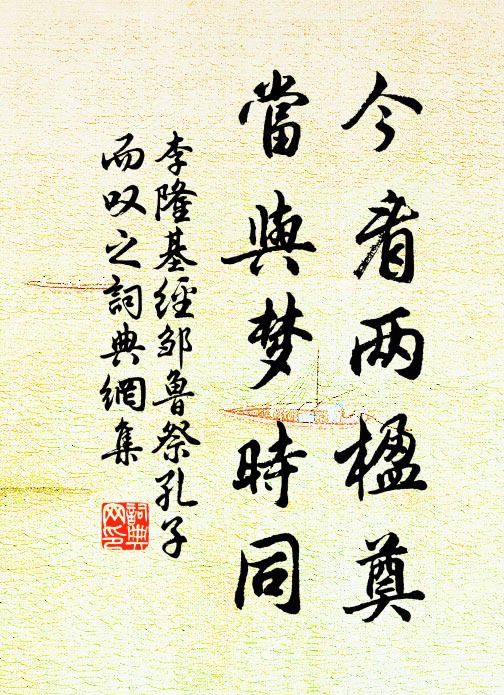 今看两楹奠
當與梦時同
李隆基經邹魯祭孔子
而叹之詞典網集
詞典
网印